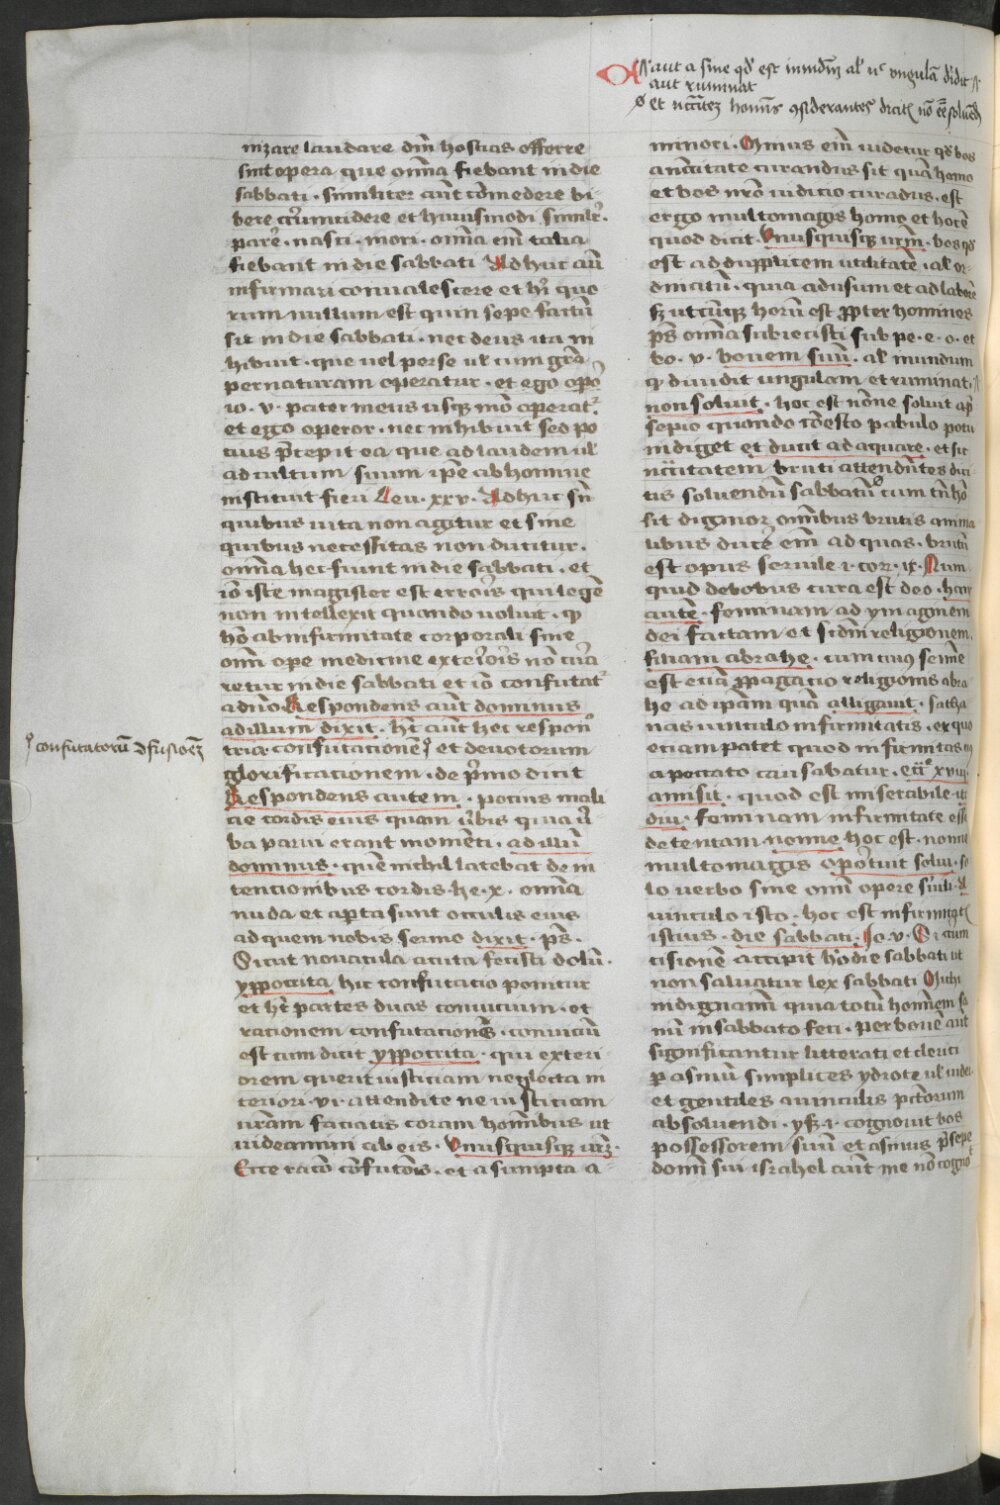 aut a sine qd est inmudm al' nᵒ ungulā diuidit
aut ruminat
et nccitatem hominis considerantes dicitis nō eē soluend
nizare laudare dm̄ hostias offerre
sint opera que om̄ia fiebant in die
sabbati . similiter aut̄ cōmedere bi
bere circumcidere et huiusmodi similr̄
parē . nasci . mori . om̄ia em̄ talia
fiebant in die sabbati Adhuc aut̄
infirmari conualescere et h̄i quo
rum nullum est quin sepe factū
sit in die sabbati . nec deus ita in
hibuit . que uel per se ul̄ cum grā
per naturam operatur . et ego
io . v . pater meus usq̄ mō operat̄
et ego operor . nec inhibuit sed po
cius p̄cepit ea que ad laudem ul̄
ad cultum suum ipē ab homine
instituit fieri Leu . xxv . Adhuc sn̄
quibus uita non agitur et sine
quibus necessitas non ducitur .
om̄ia hec fiunt in die sabbati . et
iō iste magister est erroris qui legē
non intellexit quando uoluit . q̄
hō ab infirmitate corporali sine
om̄i ope medicine exterioris nō cura
retur in die sabbati et iō confutat̄
a dn̄o Respondens aut̄ dominus
ad illum dixit . h̄t aut̄ hec respon
confutationē et deuotorum
confutatorū
glorificacionem . de p̄mo dicit
Respondens autem . pocius mali
cie cordis eius quam ūbis quia ū
ba parui erant momēti . ad illū
dominus . quē nichil latebat de in
tencionibus cordis . he . x . om̄ia
nuda et aperta sunt occulis eius
ad quem nobis sermo dixit . ps̄ .
Sicut nouacula acuta fecisti dolū .
ypocrita hic confutacio ponitur
et h̄t partes duas conuicium . et
racionem confutacionis . conuiciū
est cum dicit ypocrita . qui exteri
orem querit iusticiam neglecta in
teriori . vi . attendite ne iusticiam
ur̄am faciatis coram hominibus ut
uideamini ab eis . Unusquisque ur̄m .
Ecce racio cōfutōis . et a sumpta a
minori . Minus em̄ uidetur qd̄ bos
a uacuitate curandus sit quā homo
et bos ur̄o iudicio curādus . est
ergo multomagis homo et hoc ē
quod dicit . Unusquisq̄ ur̄m . bos qd̄
est ad duplicem utilitatē . al'
dinatū . quia ad usum et ad laborē
sz utcūq̄ horū est propter homines
ps̄ om̄ia subiecisti sub pe . e . o . et
bo . v . bouem suū . al' mundum
q̄ diuidit ungulam et ruminat .
non soluit . hoc est nōne soluit a p̄
sepio quando cōmesto pabulo potu
indiget et ducit ad aquare . et sic
nccitatem bruti attendētes dici
tis soluendū sabbatū cum tn̄ hō
sit dignior om̄ibus brutis anima
libus ducere em̄ ad quas . brutū
est opus seruile i . cor . ix . Num
quid de bobus cura est deo . hanc
autē . feminam ad ymaginem
dei factam et scdm̄ religionem .
filiam abrahe . cum cuius semine
est eciā propagacio religionis abra
he ad ipsam quā alligauit . satha
nas uinculo infirmitatis . ex quo
eciam patet quod infirmitas
a peccato causabatur . ecci xviii .
annis . quod est miserabile . ita
diu . feminam infirmitate esse
detentam . nonne hoc est . nonne
multomagis oportuit solui . so
lo uerbo sine om̄i opere suili . a
uinculo isto . hoc est infirmitat̄
istius . die sabbati . Jo . v . Si cum
cisionē accipit hō die sabbati ut
non soluatur lex sabbati Michi
indignamini quia totū hominem sa
nū in sabbato feci . per bouē aut
significantur litterati et clerici
per asinū simplices ydiote ul̄ iudei .
et gentiles a uinculis pctorum
absoluendi . ys . i . cognouit bos
possessorem suū et asinus p̄sepe
domini sui israhel aut̄ me nō cognoᵗ